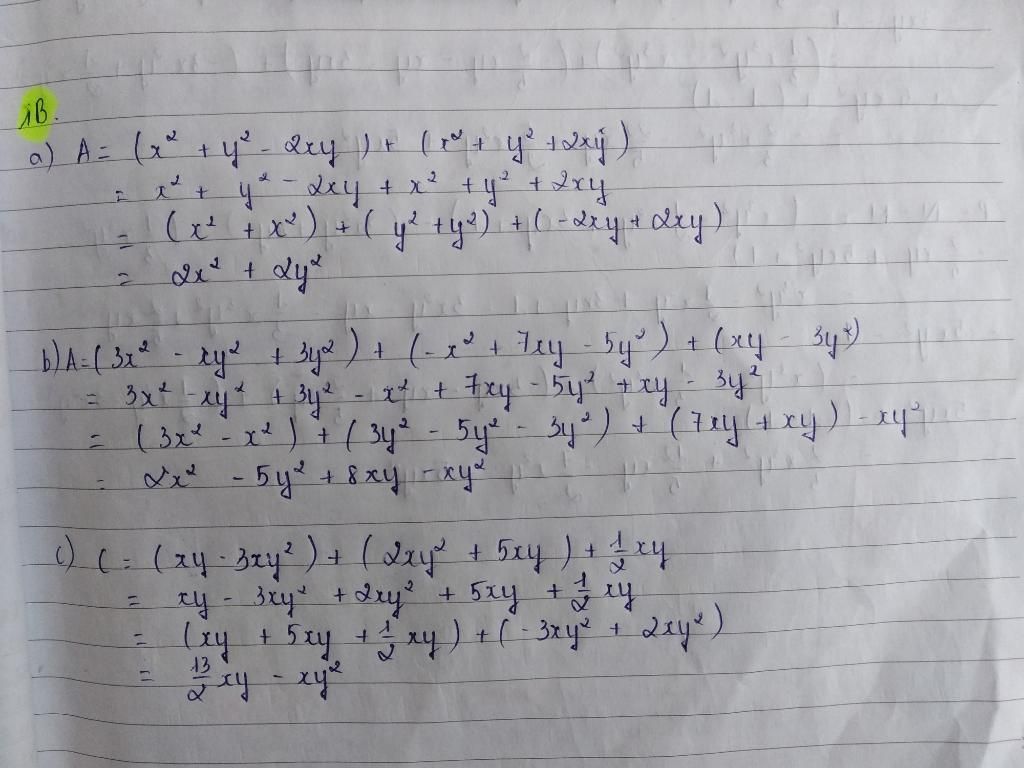 1B.
a) A = (x² + y² - 2xy) + (x² + y² + 2xy)
= x² + y² - 2xy + x² + y² + 2xy
= (x² + x²) + (y² + y²) + (-2xy + 2xy)
= 2x² + 2y²
b) A = (3x² - xy² + 3y²) + (-x² + 7xy - 5y²) + (xy - 3y²)
= 3x² - xy² + 3y² - x² + 7xy - 5y² + xy - 3y²
= (3x² - x²) + (3y² - 5y² - 3y²) + (7xy + xy) - xy²
= 2x² - 5y² + 8xy - xy²
c) C = (xy - 3xy²) + (2xy² + 5xy) + 1/2 xy
= xy - 3xy² + 2xy² + 5xy + 1/2 xy
= (xy + 5xy + 1/2 xy) + (-3xy² + 2xy²)
= 13/2 xy - xy²